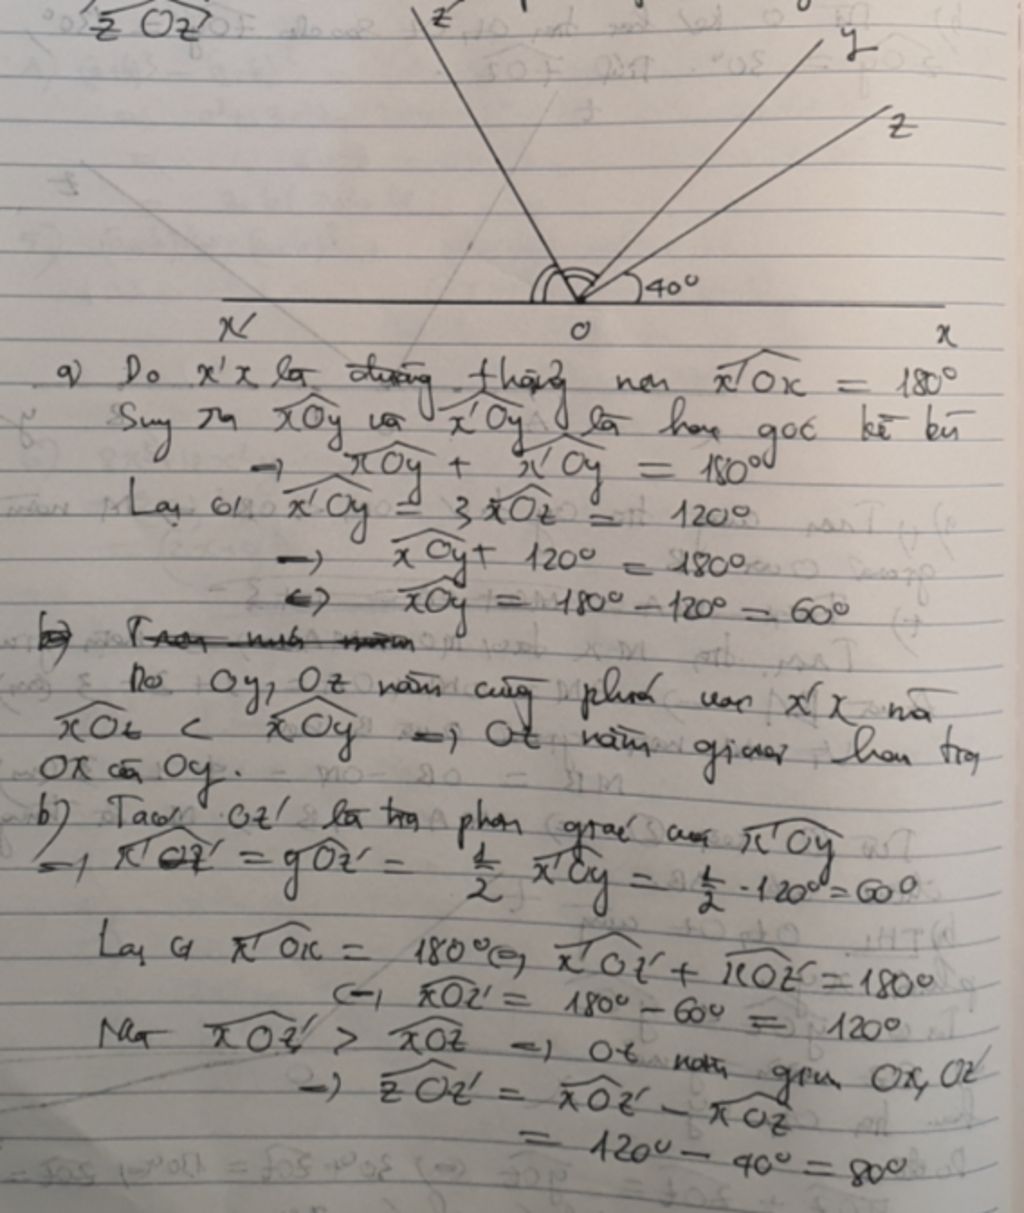 zOz'
z'
y
z
40°
x'
O
x
a) Do x'x là đường thẳng nên x'Ox = 180°
Suy ra xOy và x'Oy là hai góc kề bù
=> xOy + x'Oy = 180°
Lại có x'Oy = 3 xOz = 120°
=> xOy + 120° = 180°
<=> xOy = 180° - 120° = 60°
Do Oy, Oz nằm cùng phía với x'x mà
xOz < xOy => Oz nằm giữa hai tia
Ox và Oy.
b) Ta có Oz' là tia phân giác của x'Oy
=> x'Oz' = yOz' = 1/2 x'Oy = 1/2 . 120° = 60°
Lại có x'Ox = 180° <=> x'Oz' + xOz' = 180°
<=> xOz' = 180° - 60° = 120°
Mà xOz' > xOz => Oz nằm giữa Ox, Oz'
=> zOz' = xOz' - xOz
= 120° - 40° = 80°